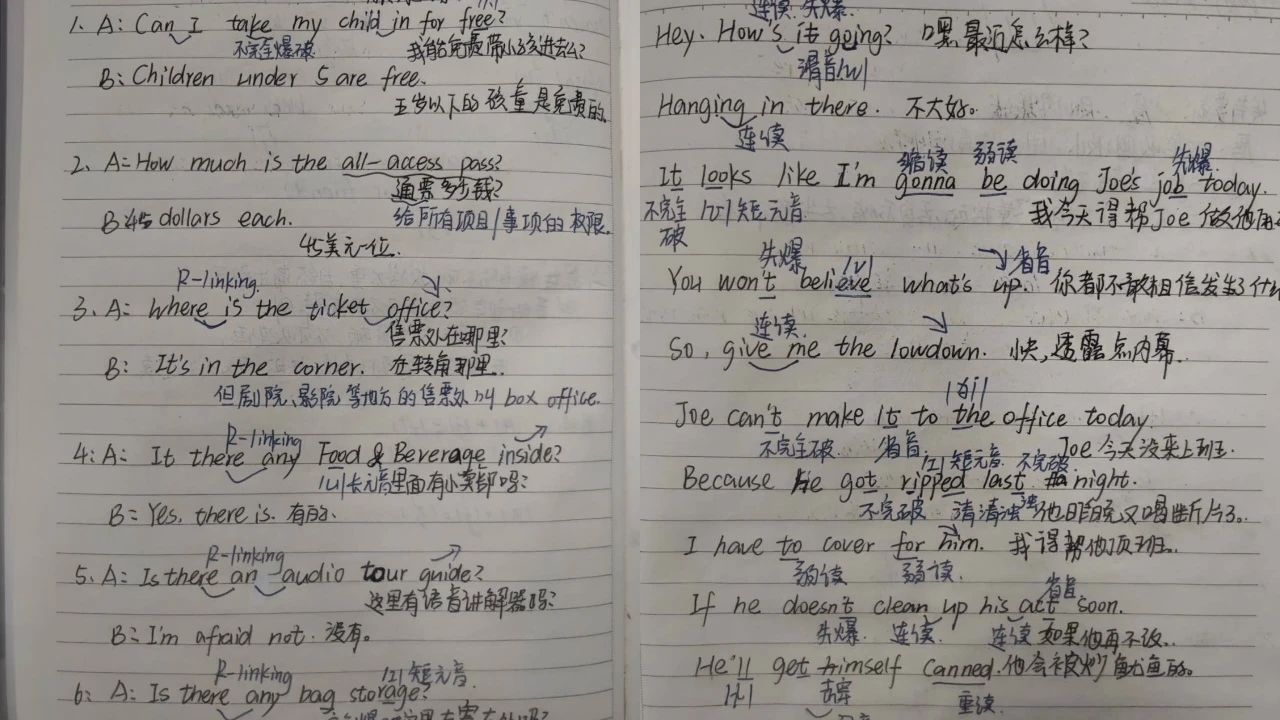 1. A: Can I take my child in for free?
不完全爆破 我能免费带小孩进去么?
B: Children under 5 are free.
五岁以下的孩童是免费的.
2. A: How much is the all-access pass?
通票多少钱?
B: 45 dollars each. 给所有项目/事项的权限.
45美元一位.
R-linking.
3. A: Where is the ticket office?
售票处在哪里?
B: It's in the corner. 在转角那里.
但剧院、影院等地方的售票处叫 box office.
R-linking
4: A: It there any Food & Beverage inside?
长元音 里面有小卖部吗?
B: Yes, there is. 有的.
R-linking
5. A: Is there an audio tour guide?
这里有语音讲解器吗?
B: I'm afraid not. 没有。
R-linking 短元音
6: A: Is there any bag storage?
连续.失爆.
Hey. How's it going? 嘿,最近怎么样?
滑音/w/
Hanging in there. 不大好.
连读
缩读 弱读 失爆
It looks like I'm gonna be doing Joe's job today.
不完全破 短元音 我今天得帮Joe做他的
失爆 /v/ 省音
You won't believe what's up. 你都不敢相信发生了什
连读.
So, give me the lowdown. 快,透露点内幕.
Joe can't make it to the office today.
不完全破. 省音. Joe 今天没来上班.
短元音 不完破
Because he got ripped last night.
不完破 清清浊浊 他昨晚又喝断片了.
I have to cover for him. 我得帮他顶班.
弱读 弱读.
省音
If he doesn't clean up his act soon.
失爆. 连读. 连读 如果他再不改.
He'll get himself canned. 他会被炒鱿鱼的.
重读.